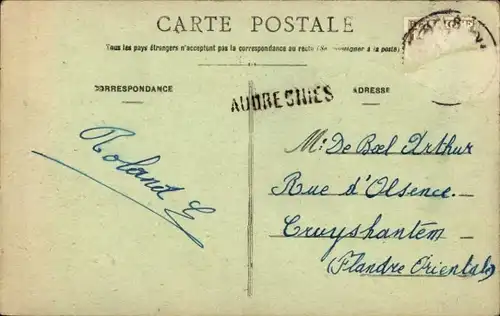 CARTE POSTALE
Tous les pays étrangers n'acceptent pas la correspondance au recto (Se renseigner à la poste)
CORRESPONDANCE
ADRESSE
AUDREGNIES
Roland G
Mr De Bœl Arthur
Rue d'Olsence.
Cruyshautem
(Flandre Orientale)